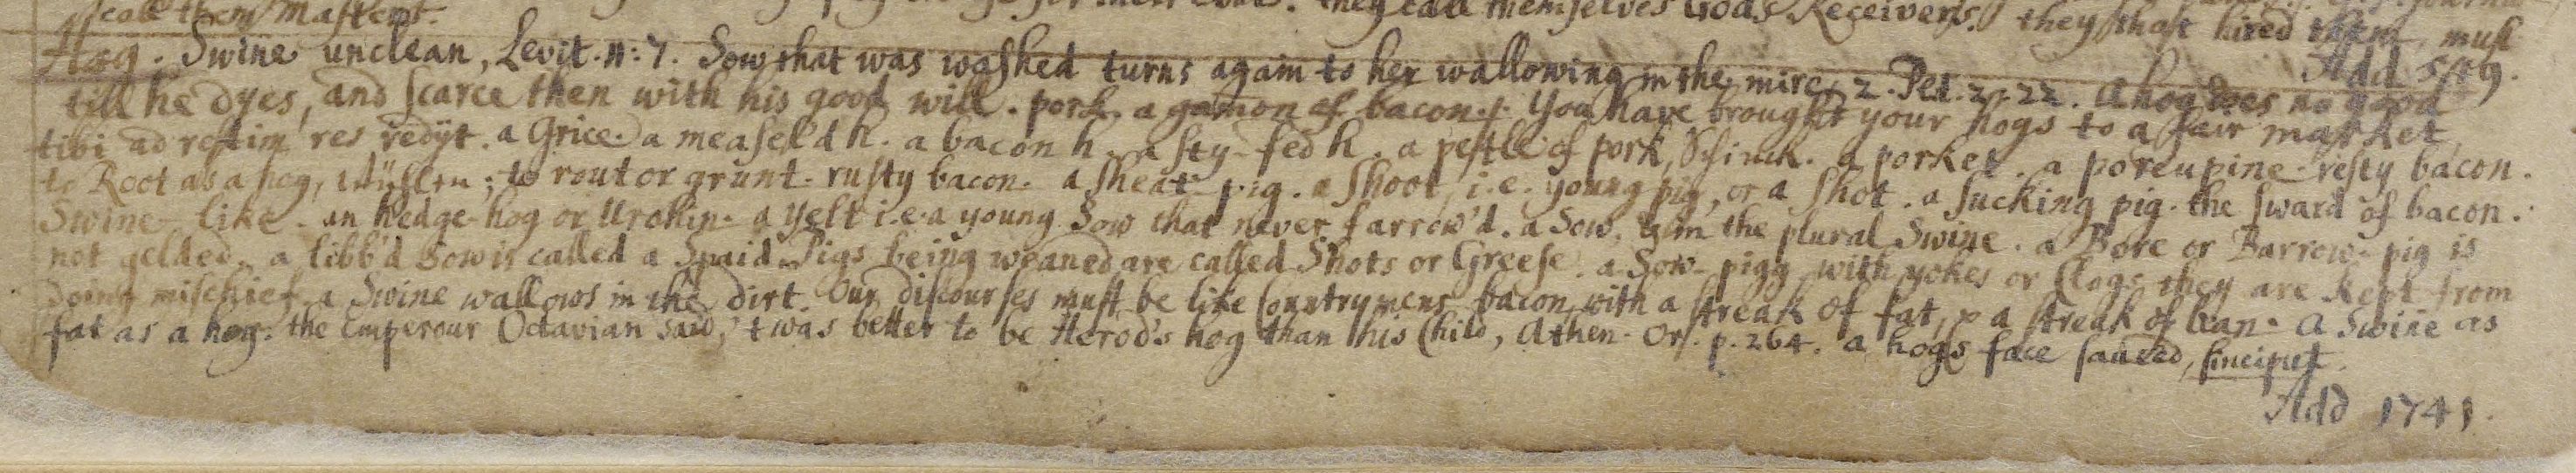 call them Masters. they call themselves Gods Receivers. they that hired them must
Add 519.
Hog. Swine unclean, Levit. 11:7. Sow that was washed turns again to her wallowing in the mire, 2. Pet. 2. 22. A hog does no good
till he dyes, and scarce then with his good will. pork. a gamon of bacon. You have brought your hogs to a fair market,
tibi ad restim res redijt. a Grice. a measel'd h. a bacon h. a sty-fed h. a pestle of pork, Schinck. a porket. a porcupine. resty bacon.
to Root as a hog, ; to rout or grunt. rusty bacon. a sheat-pig. a shoot, i.e. young pig, or a shot. a sucking pig. the sward of bacon.
Swine-like. an hedge-hog or Urchin. a yelt i.e. a young Sow that never farrow'd. a Sow, in the plural Swine. a Bore or Barrow-pig is
not gelded. a libb'd Sow is called a Spaid. Pigs being weaned are called Shots or Greese. a Sow-pigg. with yokes or Clogs they are kept from
doing mischief. a Swine wallows in the dirt. Our discourses must be like Countrymens bacon with a streak of fat, & a streak of lean. A Swine as
fat as a hog. the Emperour Octavian said, 't was better to be Herod's hog than his Child, Athen. Or. p. 264. a hogs face sauced, sinciput.
Add 1741.